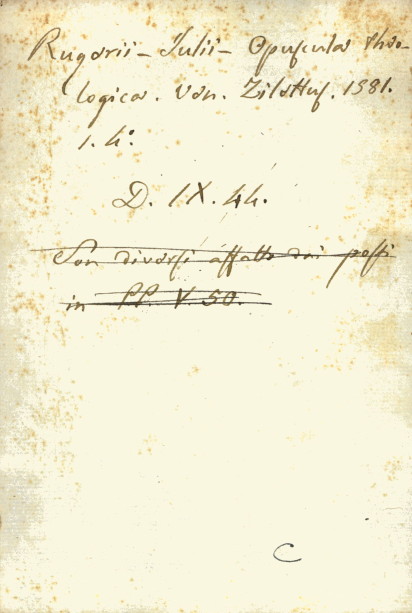 Rugerii - Julii - Opuscula theo-
logica. Ven. Zilettus. 1581.
1. 4:
D. IX. 44.
Son diversi affatto dai posti
in PP. V. 50.
C